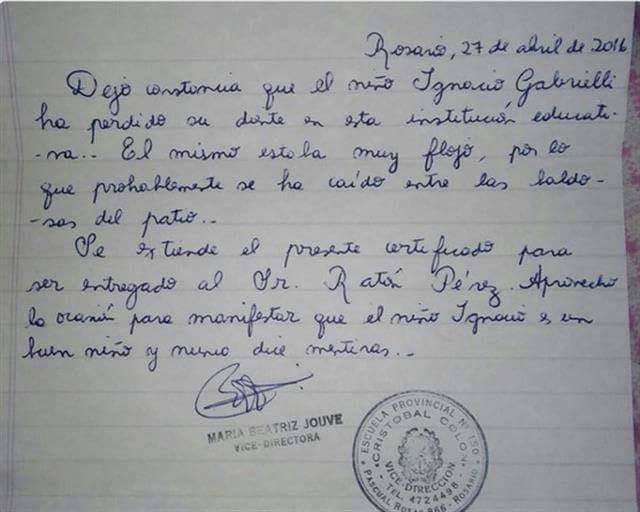 Rosario, 27 de abril de 2016
Dejo constancia que el niño Ignacio Gabrielli
ha perdido su diente en esta institución educati-
-va.. El mismo estaba muy flojo, por lo
que probablemente se ha caído entre las baldo-
-sas del patio..-
Se extiende el presente certificado para
ser entregado al Sr. Ratón Pérez. Aprovecho
la ocasión para manifestar que el niño Ignacio es un
buen niño y nunca dice mentiras..-
MARIA BEATRIZ JOUVE
VICE-DIRECTORA
ESCUELA PROVINCIAL Nº 150
"CRISTOBAL COLON"
VICE-DIRECCION
TEL. 4724498
PASCUAL ROSAS 866 - ROSARIO